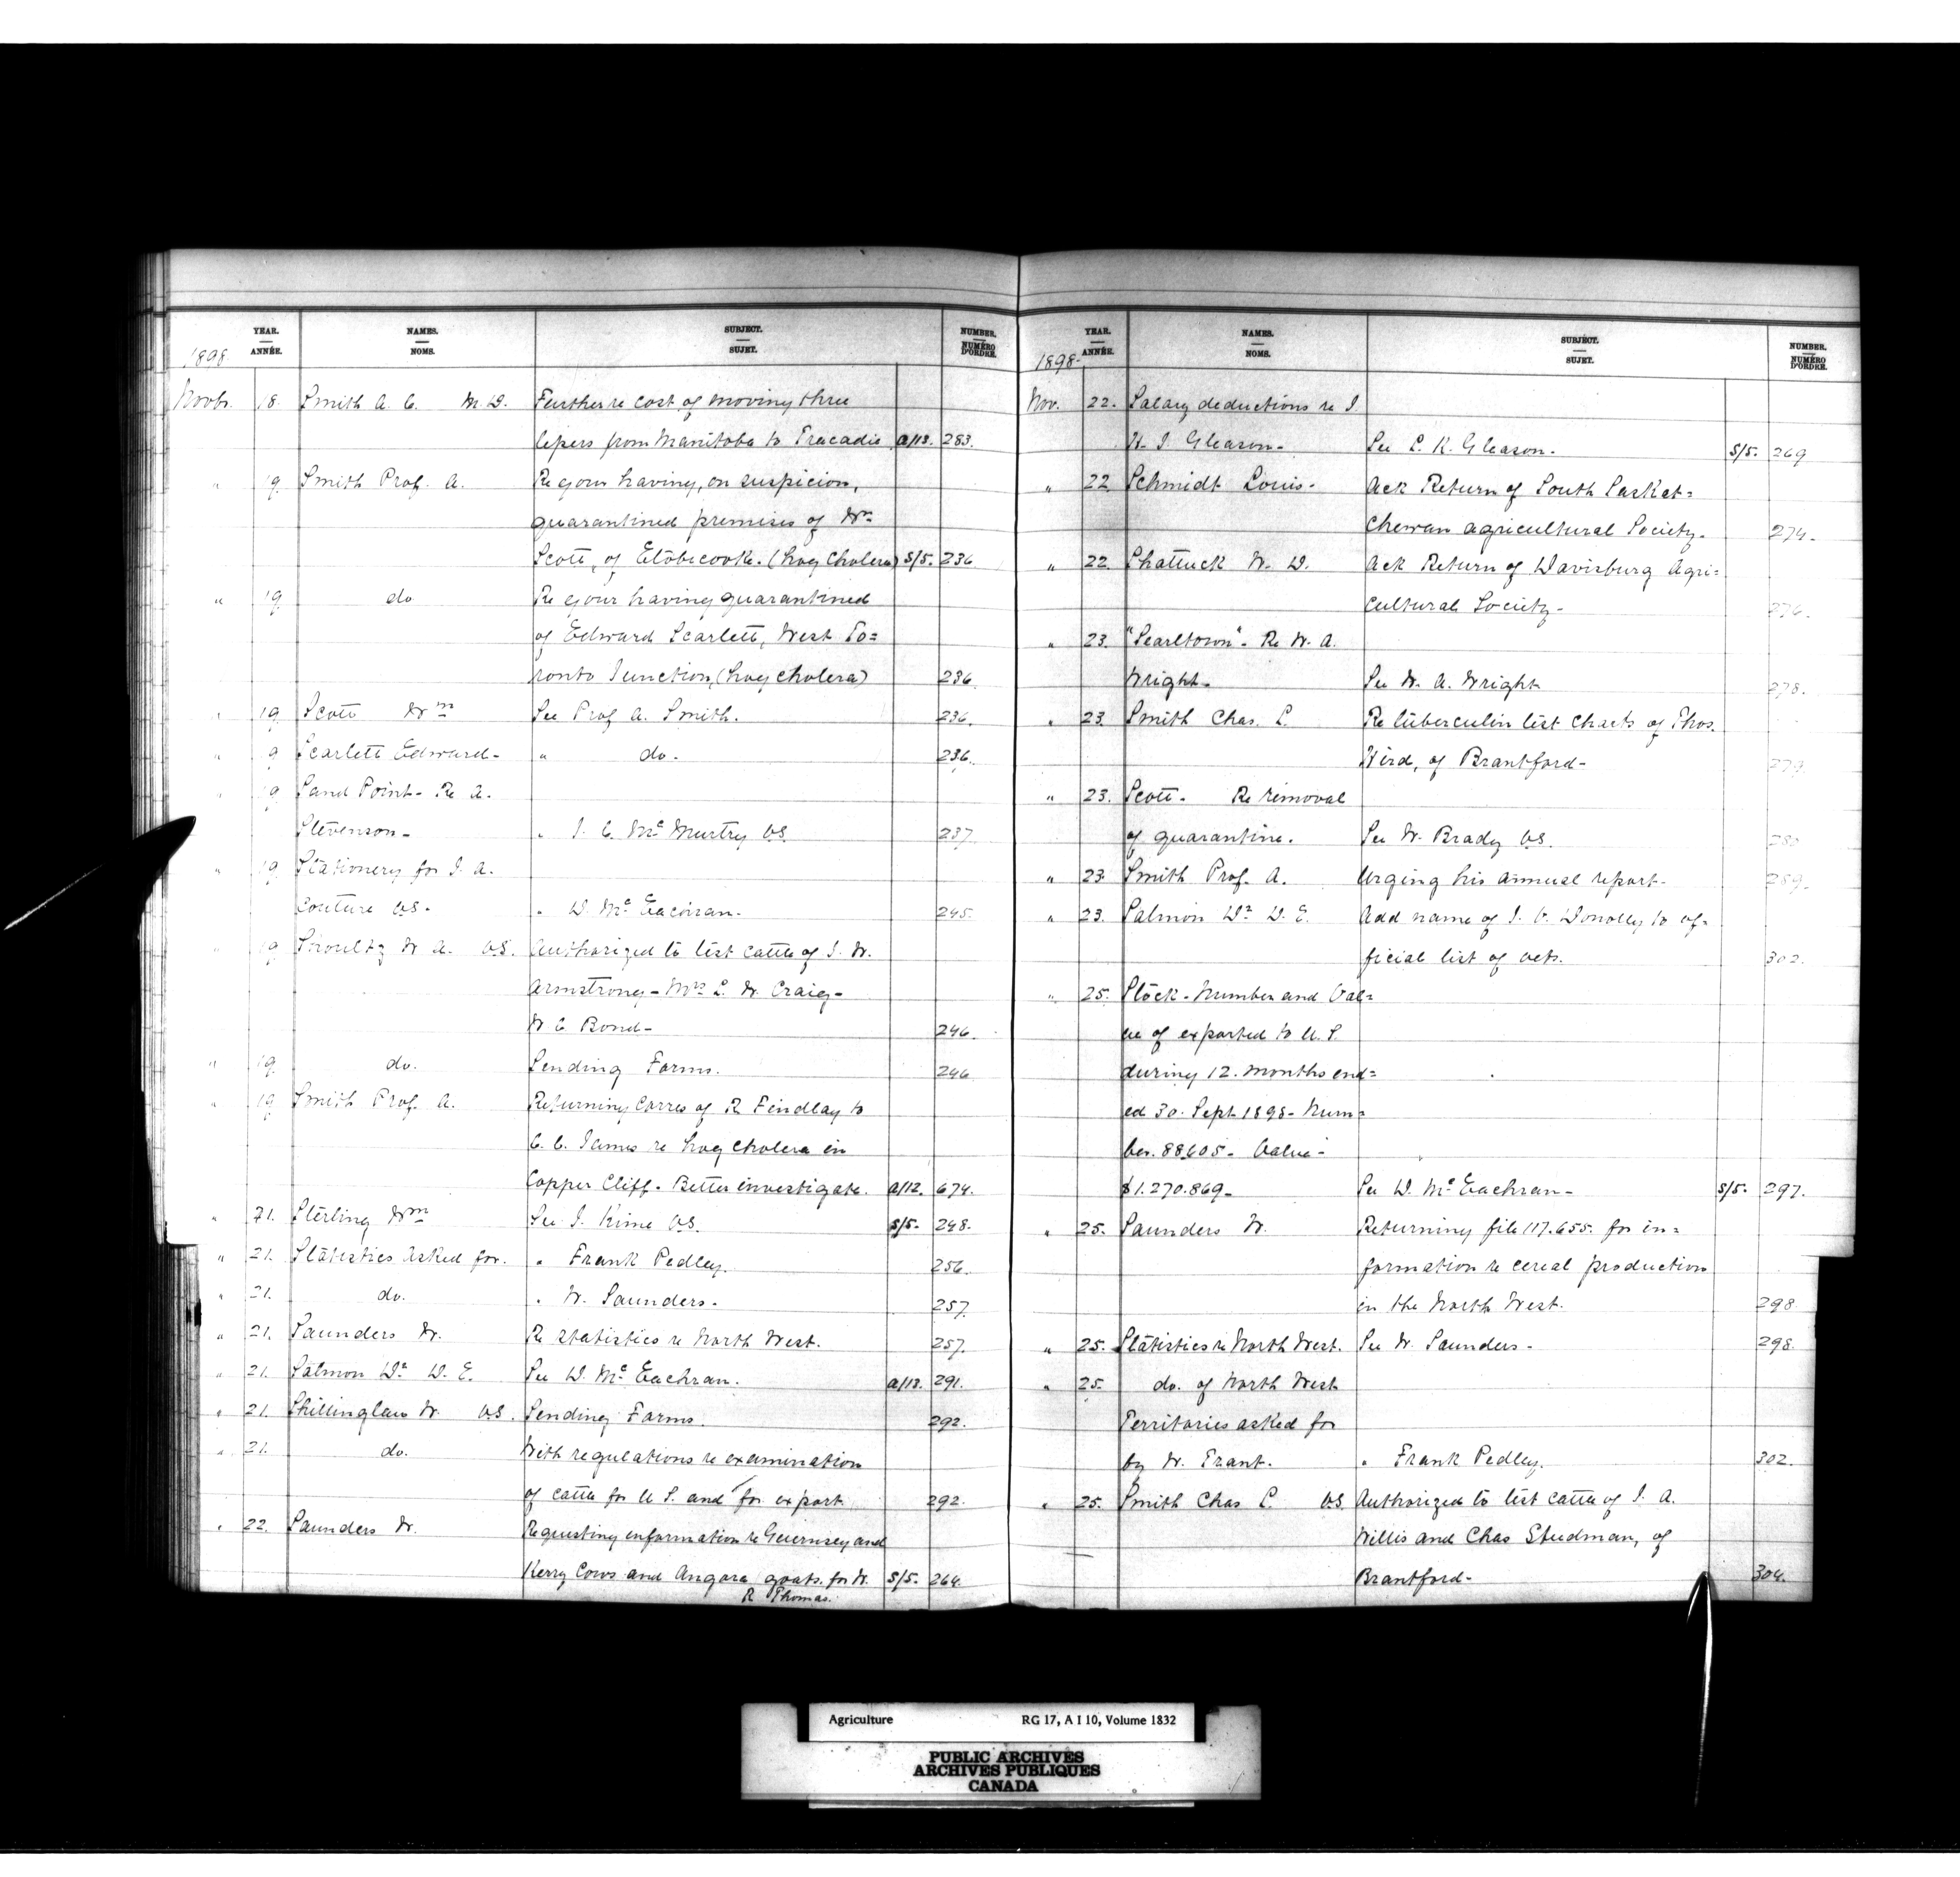 YEAR. ANNÉE. NAMES. NOMS. SUBJECT. SUJET. NUMBER. NUMÉRO D'ORDRE.
1898.
Novbr. 18. Smith A. C. M.D. Further re cost of moving three
lepers from Manitoba to Tracadie a/13. 283.
" 19. Smith Prof. A. Re your having, on suspicion,
quarantined premises of Wm
Scott, of Etobicooke. (hog cholera) S/5. 236
" 19. do Re your having quarantined
of Edward Scarlett, West To=
ronto Junction, (hog cholera) 236.
" 19. Scott Wm See Prof A. Smith. 236.
" 9 Scarlett Edward- " do. 236.
" 19. Sand Point- Re A.
Stevenson- " J. C. McMurtry V.S. 237.
" 19. Stationery for J. A.
Couture V.S. " D. McEachran. 245.
" 19 Shoultz W. A. V.S. Authorized to test cattle of J. W.
Armstrong- Mrs L. W. Craig-
W C Bond- 246.
" 19. do. Sending Forms. 246
" 19 Smith Prof. A. Returning Corres of R Findlay to
C. C. James re hog cholera in
Copper Cliff. Better investigate. a/12. 674.
" 21. Sterling Wm See J. Kime V.S. S/5. 248.
" 21. Statistics asked for. " Frank Pedley. 256.
" 21. do. " W. Saunders. 257.
" 21. Saunders W. Re statistics re North West. 257.
" 21. Salmon Dr D. E. See D. McEachran. a/13. 291.
" 21. Shillinglaw W. V.S. Sending Forms. 292.
" 21. do. With regulations re examination
of cattle for U S. and for export 292.
" 22. Saunders W. Requesting information re Guernsey and
Kerry Cows and Angora goats. for W. S/5. 264.
R Thomas.
YEAR. ANNÉE. NAMES. NOMS. SUBJECT. SUJET. NUMBER. NUMÉRO D'ORDRE.
1898-
Nov. 22. Salary deductions re J.
H. J. Gleason- See L. K. Gleason- S/5. 269
" 22 Schmidt Louis- Ack Return of South Saskat=
chewan Agricultural Society- 274.
" 22. Shattuck W. D. Ack Return of Davisburg Agri=
cultural Society- 276.
" 23. "Searltown"- Re W. A.
Wright- See W. A. Wright 278.
" 23. Smith Chas. L. Re tuberculin test charts of Thos.
Hird, of Brantford- 279.
" 23. Scott- Re removal
of quarantine. See W. Brady V.S. 280
" 23 Smith Prof. A. Urging his annual report- 289.
" 23. Salmon Dr D. E. Add name of J. V. Donolly to of=
ficial list of vets. 302.
" 25. Stock- Number and Val=
ue of exported to U. S.
during 12. months end=
ed 30. Sept 1898- Num=
ber. 88,605- Value-
$1.270.869- See D. McEachran- S/5. 297.
" 25. Saunders W. Returning file 117.655. for in=
formation re cereal production
in the North West. 298.
" 25. Statistics re North West. See W. Saunders- 298.
" 25. do. of North West
Territories asked for
by W. Trant. " Frank Pedley. 302.
" 25. Smith Chas L. V.S. Authorized to test cattle of J. A.
Willis and Chas Studman, of
Brantford- 304.
Agriculture RG 17, A I 10, Volume 1832
PUBLIC ARCHIVES
ARCHIVES PUBLIQUES
CANADA